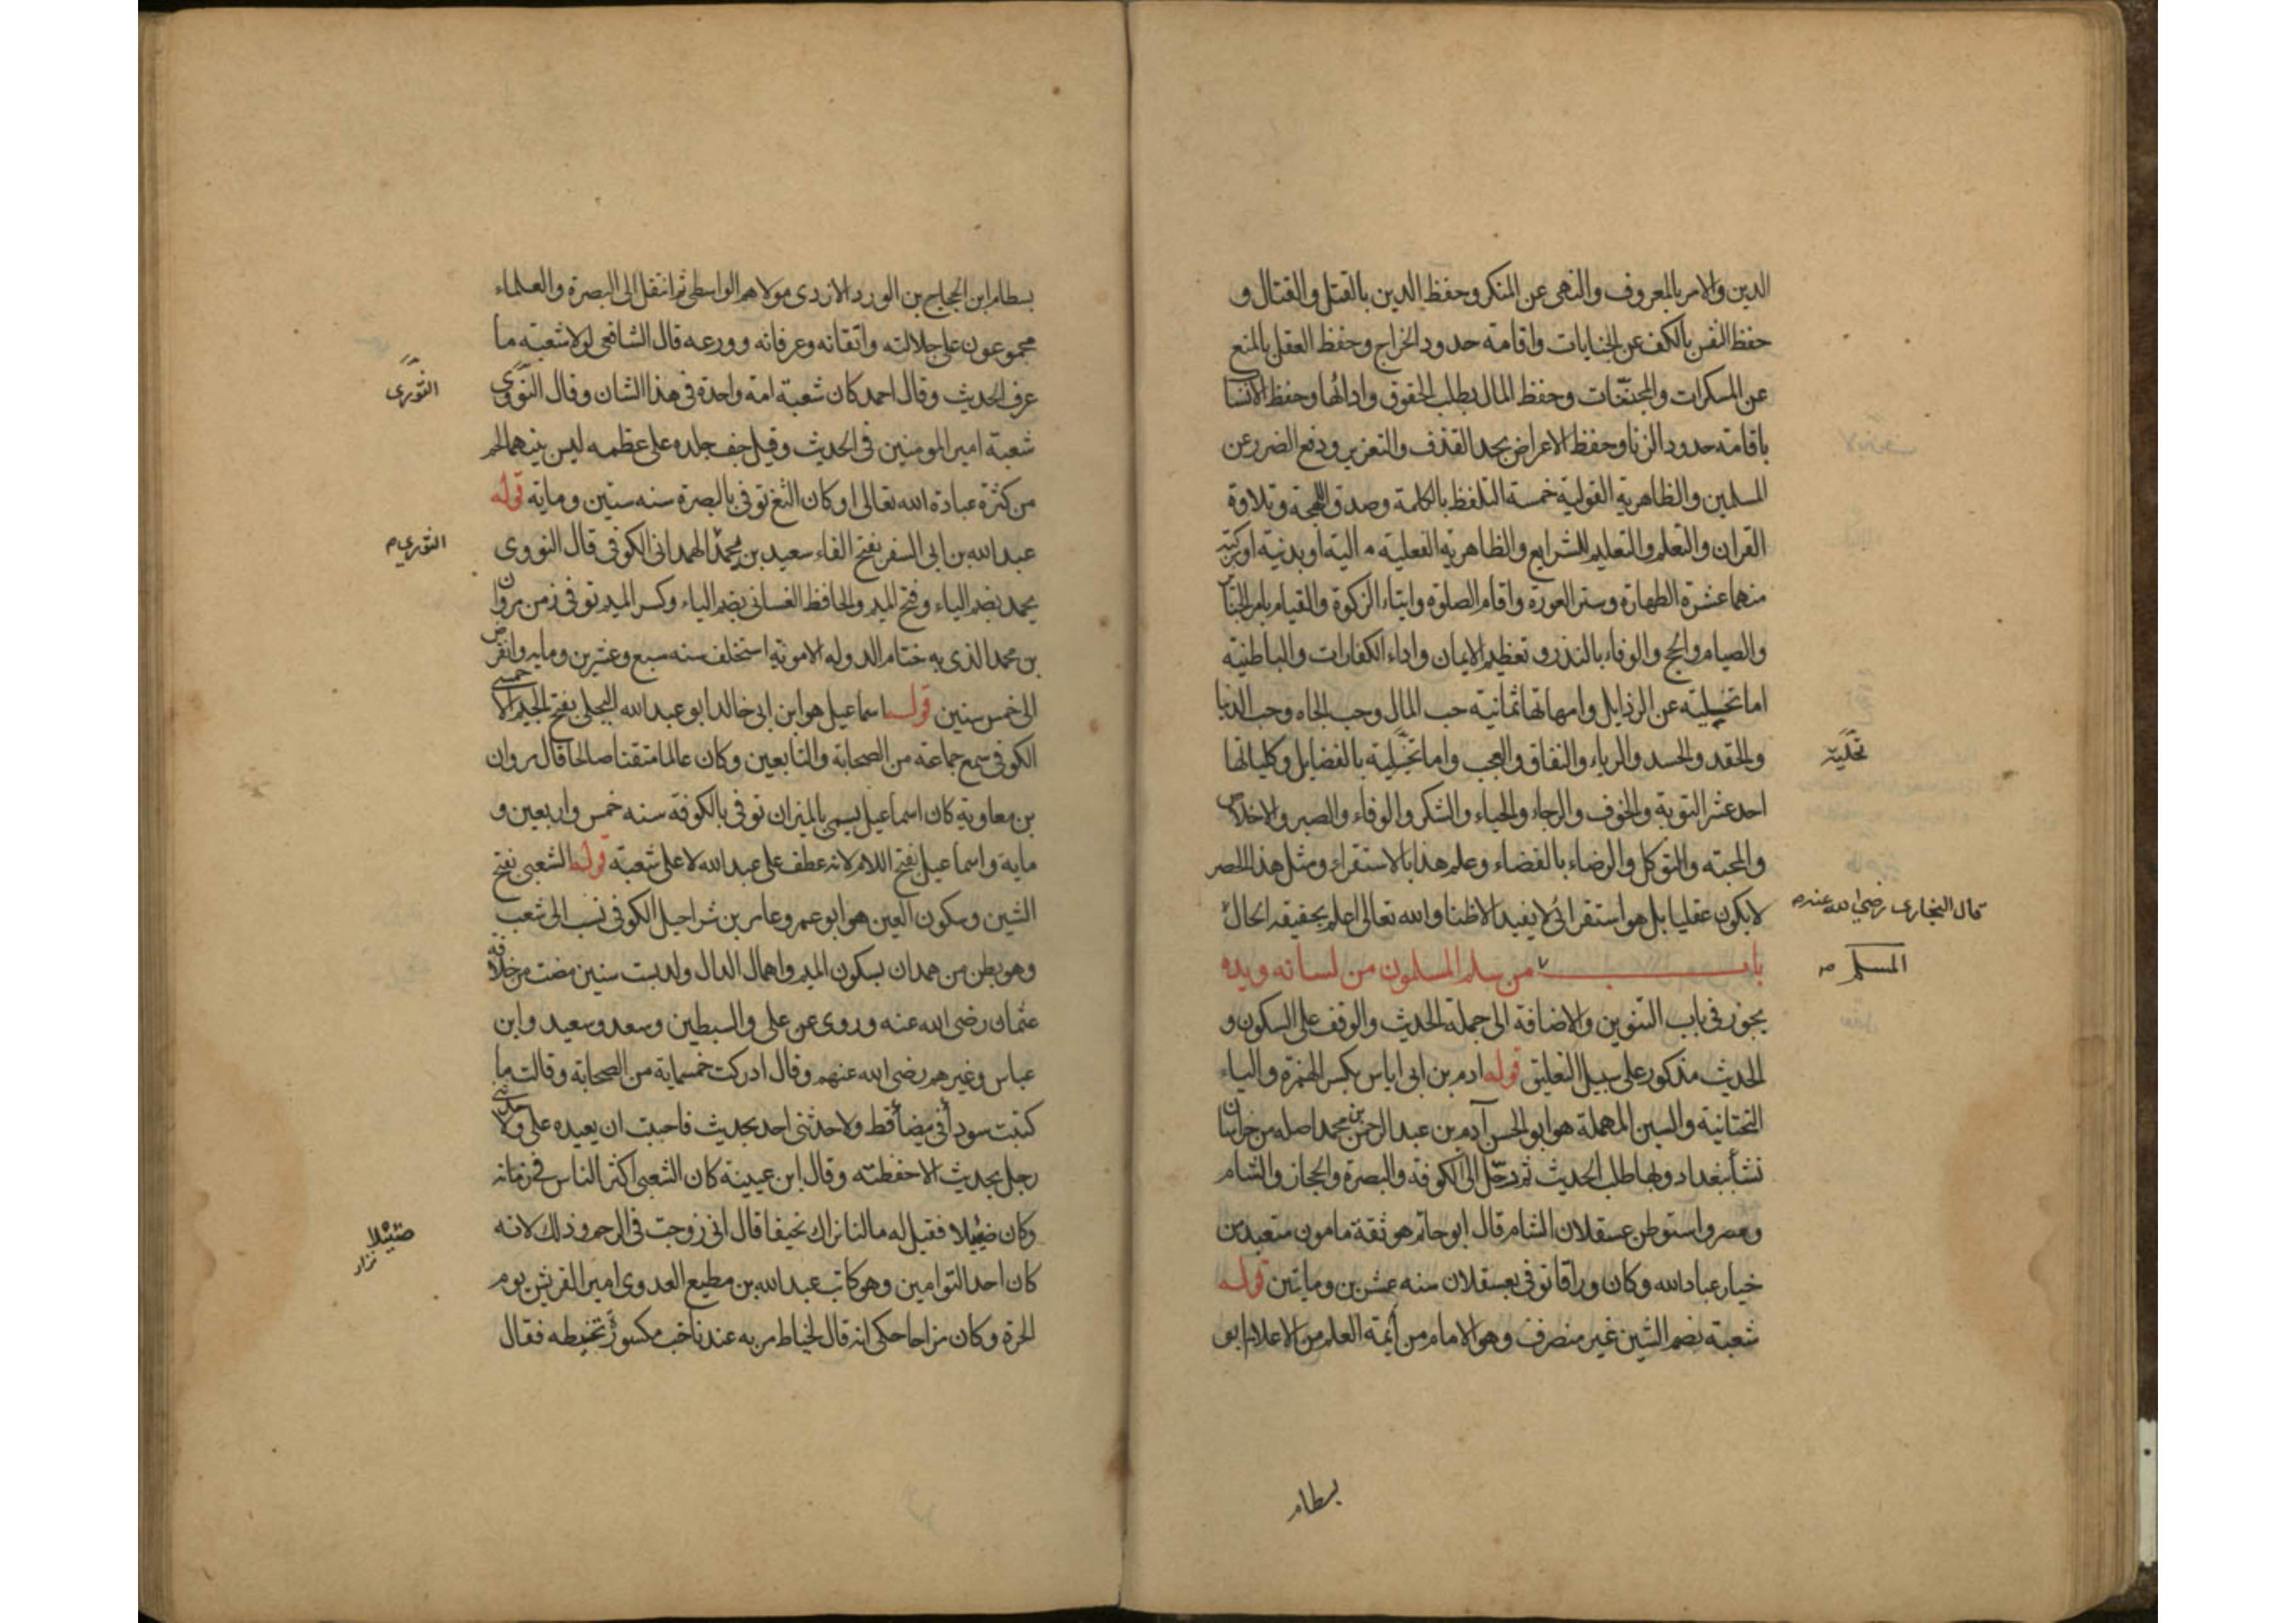 الدين والامر بالمعروف والنهى عن المنكر وحفظ الدين بالقتل والقتال و
حفظ النفس بالكف عن الجنايات واقامة حدود الخراج وحفظ العقل بالمنع
عن المسكرات والمجننات وحفظ المال بطلب الحقوق وادائها وحفظ الانسا
باقامة حدود الزنا وحفظ الاعراض بحد القذف والتعزير ودفع الضرر عن
المسلمين والظاهرية القولية خمسة التلفظ بالكلمة وصدق اللهجة وتلاوة
القران والتعلم والتعليم للشرايع والظاهرية الفعلية مالية او بدنية او مركبة
منهما عشرة الطهارة وستر العورة واقام الصلوة وايتاء الزكوة والقيام بامر الجنائز
والصيام والحج والوفاء بالنذر وتعظيم الايمان واداء الكفارات والباطنية
اما تخلية عن الرذايل وامهاتها ثمانية حب المال وحب الجاه وحب الدنيا
والحقد والحسد والرياء والنفاق والعجب واما تحلية بالفضايل وكلياتها
تحلية
احد عشر التوبة والخوف والرجاء والحياء والشكر والوفاء والصبر والاخلاص
والمحبته والتوكل والرضاء بالقضاء وعلم هذا بالاستقراء ومثل هذا الحصر
لا يكون عقليا بل هو استقرائى لا يفيد الا ظنا والله تعالى اعلم بحقيقة الحال
قال البخارى رضى الله عنه
باب من سلم المسلمون من لسانه ويده
المسلم
يجوز فى باب التنوين والاضافة الى جملة الحديث والوقف على السكون و
الحديث مذكور على سبيل التعليق قوله ادم بن ابى اياس بكسر الهمزة والياء
التحتانية والسين المهملة هو ابو الحسن آدم بن عبد الرحمن بن محمد اصله من خراسان
نشأ ببغداد وبها طلب الحديث ثم رحل الى الكوفة والبصرة والحجاز والشام
ومصر واستوطن عسقلان الشام قال ابو حاتم هو ثقة مامون متعبد من
خيار عباد الله وكان وراقا توفى بعسقلان سنه عشرين وماتين قوله
شعبة بضم الشين غير منصرف وهو الامام من أئمة العلم من الاعلام ابو
بسطام
بسطام ابن الحجاج بن الورد الازدى مولاهم الواسطى ثم انتقل الى البصرة والعلماء
مجموعون على جلالته واتقانه وعرفانه وورعه قال الشافعى لولا شعبة ما
عرف الحديث وقال احمد كان شعبة امة واحدة فى هذا الشان وقال النووى
الثورى
شعبة امير المومنين فى الحديث وقيل جف جلده على عظمه ليس بينهما لحم
من كثرة عبادة الله تعالى او كان الثغ توفى بالبصرة سنه ستين وماية قوله
عبد الله بن ابى السفر بفتح الفاء سعيد بن محمد الهمدانى الكوفى قال النووى
الثورى
يحمد بضم الياء وفتح الميم والحافظ الغسانى بضم الياء وكسر الميم توفى زمن مروان
بن محمد الذى به ختام الدوله الاموية استخلف سنه سبع وعشرين وماية وانقرض
الى خمس سنين قوله اسماعيل هو ابن ابى خالد ابو عبد الله البجلى بفتح الجيم الاحمسى
الكوفى سمع جماعة من الصحابة والتابعين وكان عالما متقنا صالحا قال مروان
بن معاوية كان اسماعيل يسمى بالميزان توفى بالكوفة سنه خمس واربعين و
ماية واسماعيل بفتح اللام لانه عطف على عبد الله لا على شعبة قوله الشعبى بفتح
الشين وسكون العين هو ابو عمرو عامر بن شراحيل الكوفى نسب الى شعب
وهو بطن من همدان بسكون الميم واهمال الدال ولد بست سنين مضت من خلافة
عثمان رضى الله عنه وروى عن على والسبطين وسعد وسعيد وابن
عباس وغيرهم رضى الله عنهم وقال ادركت خمسماية من الصحابة وقالت ما
كتبت سودا فى بيضا قط ولا حدثنى احد بحديث فاحببت ان يعيده على ولا حدثنى
رجل بحديث الا حفظته وقال ابن عيينة كان الشعبى اكثر الناس فى زمانه
وكان ضئيلا فقيل له مالنا نراك نحيفا قال انى زوحمت فى الرحم وذلك لانه
ضئيلا
كان احد التوامين وهو كاتب عبد الله بن مطيع العدوى امير القريش يوم
الحرة وكان مزاحا حكى انه قال لخياط مر به عندنا حب مكسور تخيطه فقال